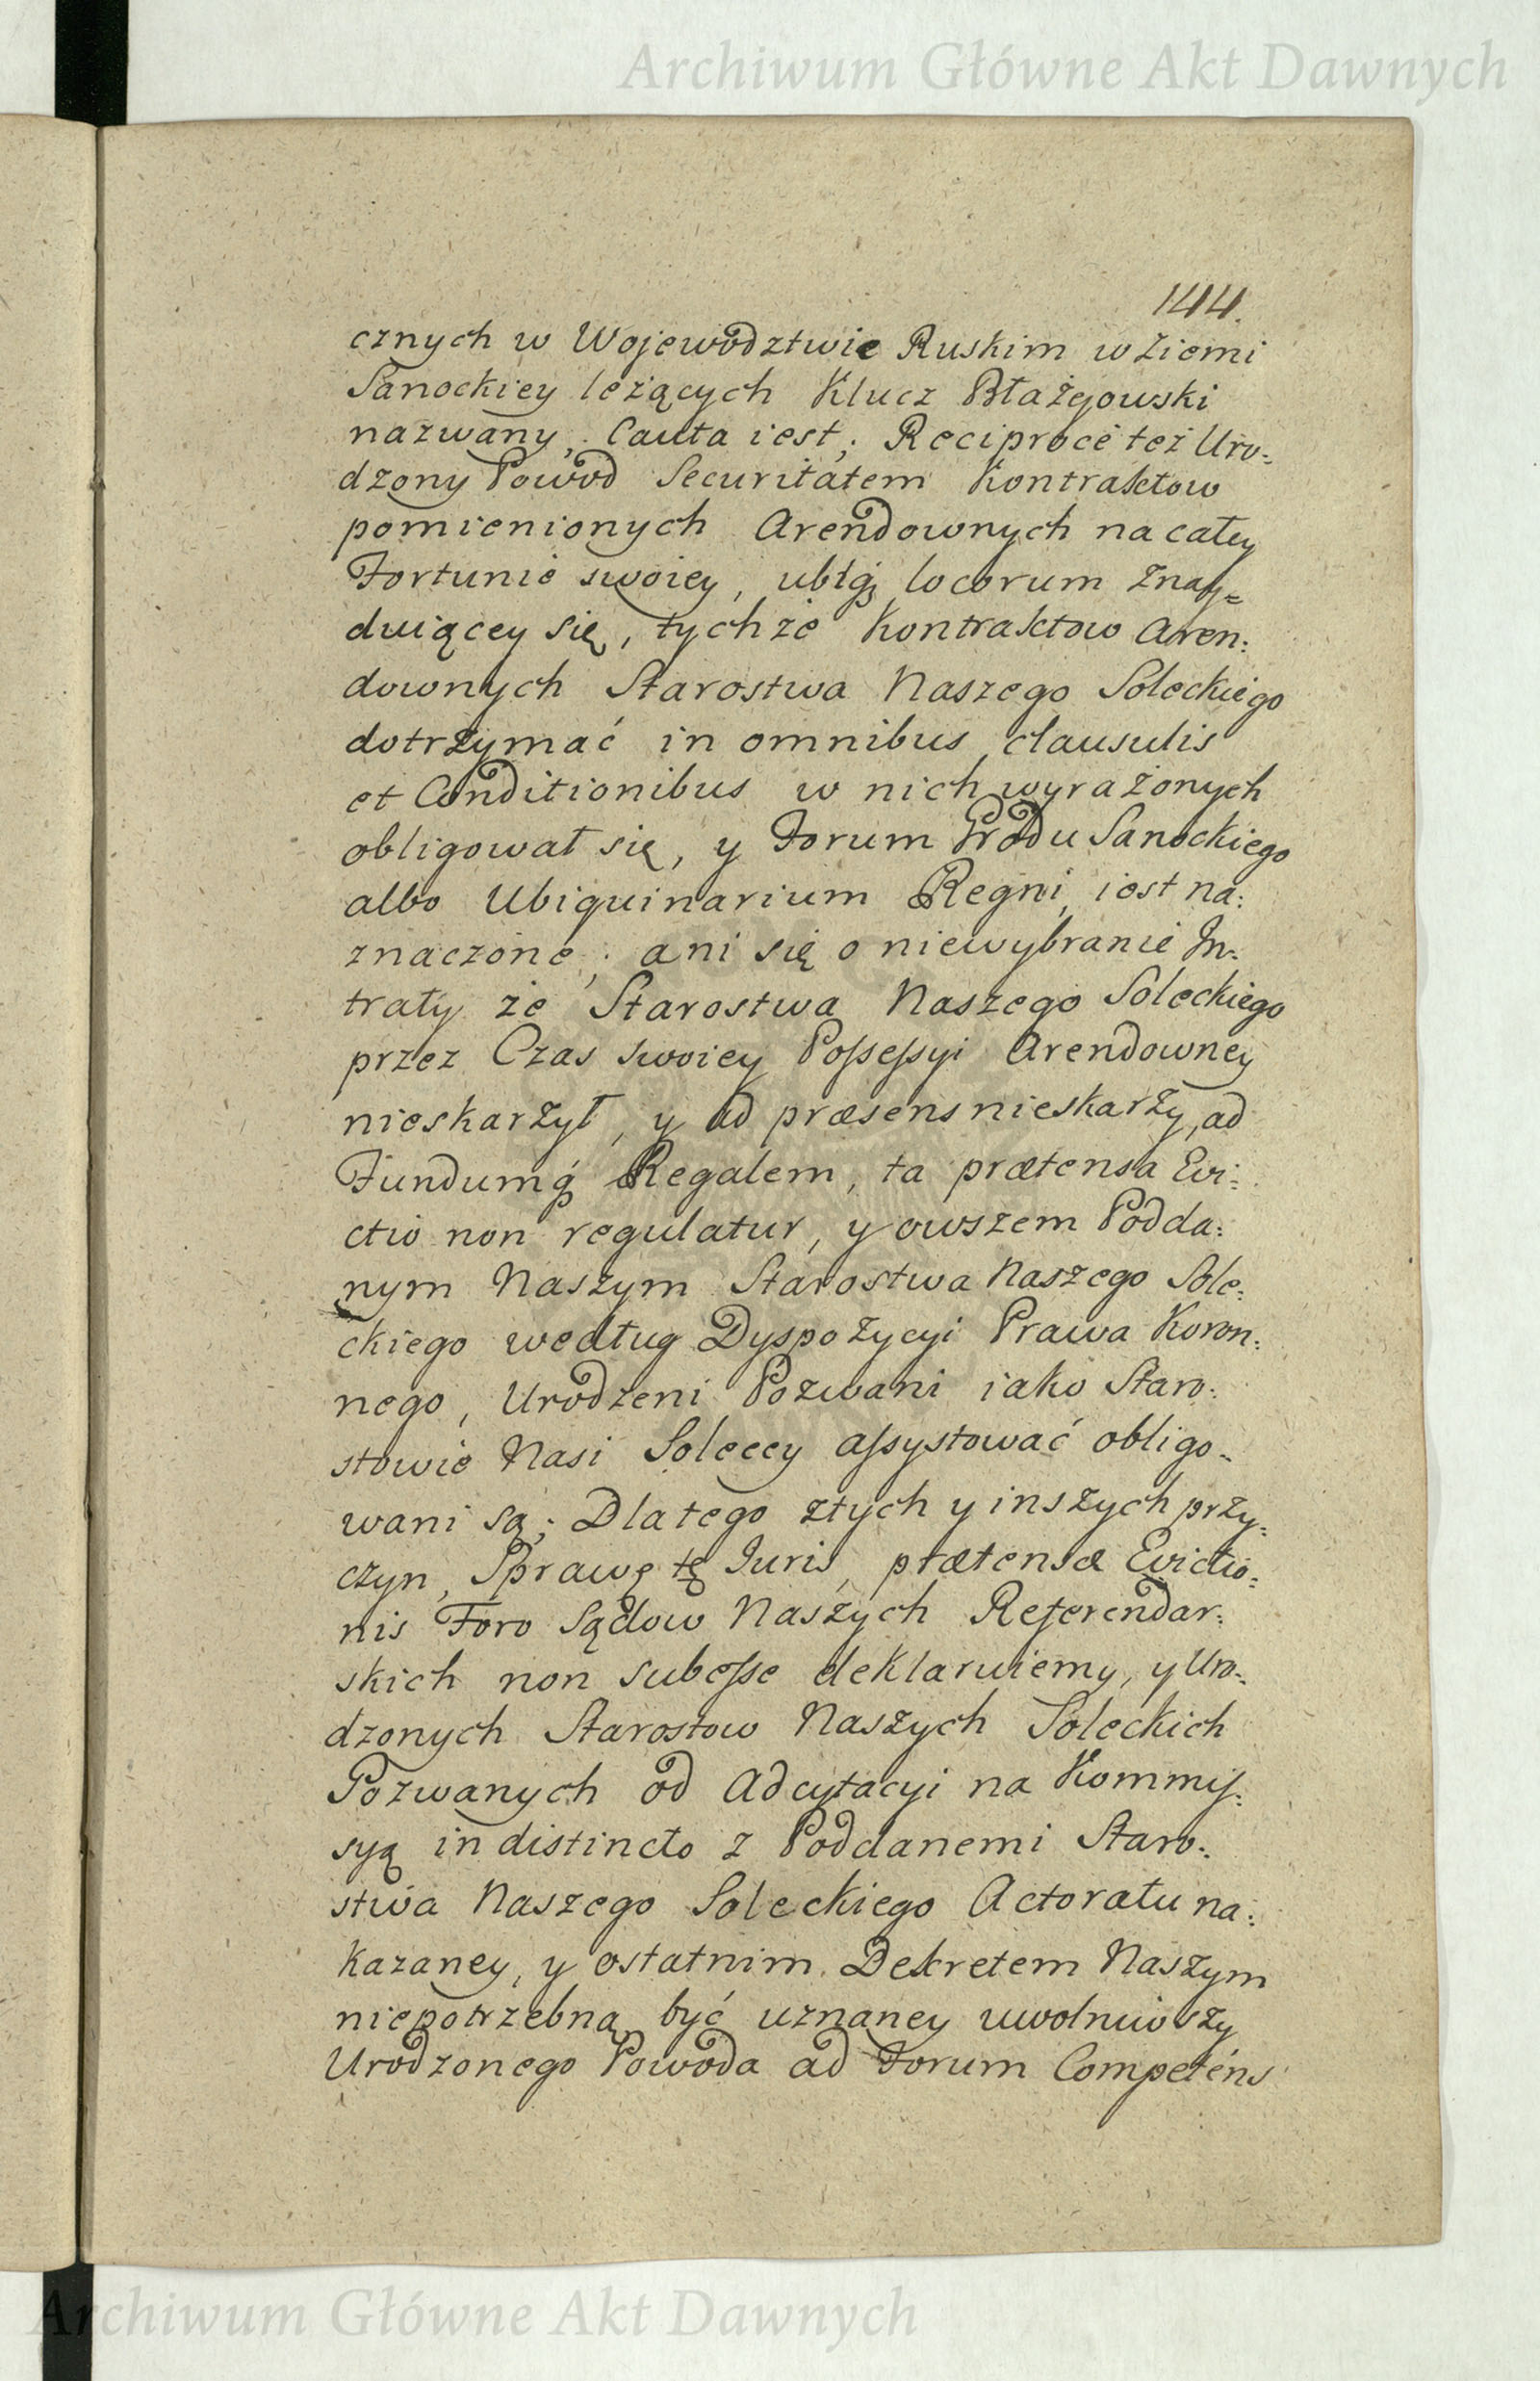 Archiwum Główne Akt Dawnych
144.
cznych w Wojewodztwie Ruskim w Ziemi
Sanockiey leżących Klucz Błażejowski
nazwany, Cauta iest; Reciproce też Uro=
dzony Powod Securitatem Kontraktow
pomienionych Arendownych na całey
Fortunie swoiey, ubiq; locorum znay=
duiącey się, tychże Kontraktow Aren:
downych Starostwa Naszego Soleckiego
dotrzymać in omnibus clausulis
et Conditionibus w nich wyrażonych
obligował się, y Forum Grodu Sanockiego
albo Ubiquinarium Regni iest na:
znaczone; ani się o niewybranie In:
traty ze Starostwa Naszego Soleckiego
przez Czas swoiey Possessyi Arendowney
nieskarżył, y ad præsens nieskarży, ad
Fundumq; Regalem, ta prætensa Evi:
ctio non regulatur, y owszem Podda:
nym Naszym Starostwa Naszego Sole:
ckiego według Dyspozycyi Prawa Koron:
nego, Urodzeni Pozwani iako Staro:
stowie Nasi Soleccy assystować obligo-
wani są; Dlatego z tych y inszych przy:
czyn, Sprawę tę Iuris prætensæ Evictio:
nis Foro Sądow Naszych Referendar:
skich non subesse deklaruiemy, y Uro:
dzonych Starostow Naszych Soleckich
Pozwanych od Adcytacyi na Kommis:
syą indistincto z Poddanemi Staro:
stwa Naszego Soleckiego Actoratu na:
kazaney, y ostatnim Dekretem Naszym
niepotrzebną być uznaney uwolniwszy
Urodzonego Powoda ad Forum Competens
Archiwum Główne Akt Dawnych